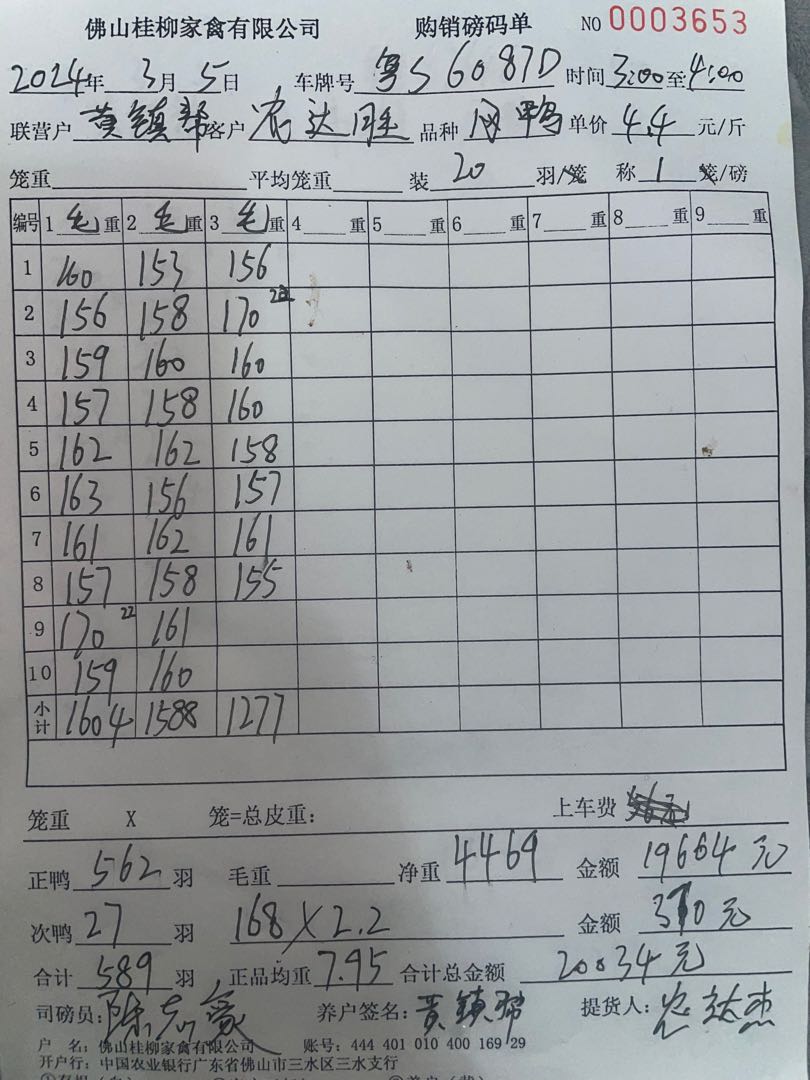 佛山桂柳家禽有限公司 购销磅码单 NO 0003653
2024年 3月 5日 车牌号 粤S6087D 时间 3:00至4:00
联营户 黄镇帮 客户 农达胜 品种 肉鸭 单价 4.4 元/斤
笼重 平均笼重 装 20 羽/笼 称 1 笼/磅
编号 1 毛 重 2 毛 重 3 毛 重 4 重 5 重 6 重 7 重 8 重 9 重
1 160 153 156
2 156 158 170 22
3 159 160 160
4 157 158 160
5 162 162 158
6 163 156 157
7 161 162 161
8 157 158 155
9 170 22 161
10 159 160
小计 1604 1588 1277
笼重 X 笼=总皮重: 上车费
正鸭 562 羽 毛重 净重 4469 金额 19664元
次鸭 27 羽 168×2.2 金额 370元
合计 589 羽 正品均重 7.95 合计总金额 20034元
司磅员: 陈志豪 养户签名: 黄镇帮 提货人:
户 名: 佛山桂柳家禽有限公司 账号: 444 401 010 400 169 29
开户行: 中国农业银行广东省佛山市三水区三水支行